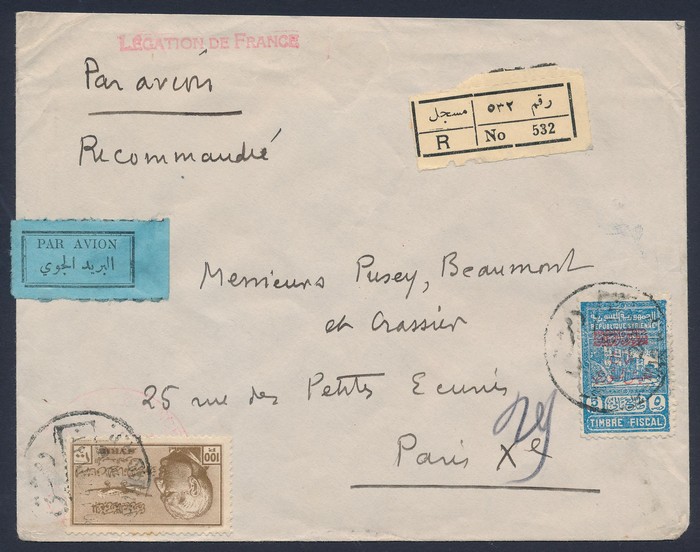 LÉGATION DE FRANCE
Par avion
Recommandé
مسجل رقم ٥٣٢
R No 532
PAR AVION
البريد الجوي
Messieurs Pusey, Beaumont
et Crassier
25 rue des Petites Ecuries
Paris Xe
REPUBLIQUE SYRIENNE
5 ٥
TIMBRE FISCAL
100